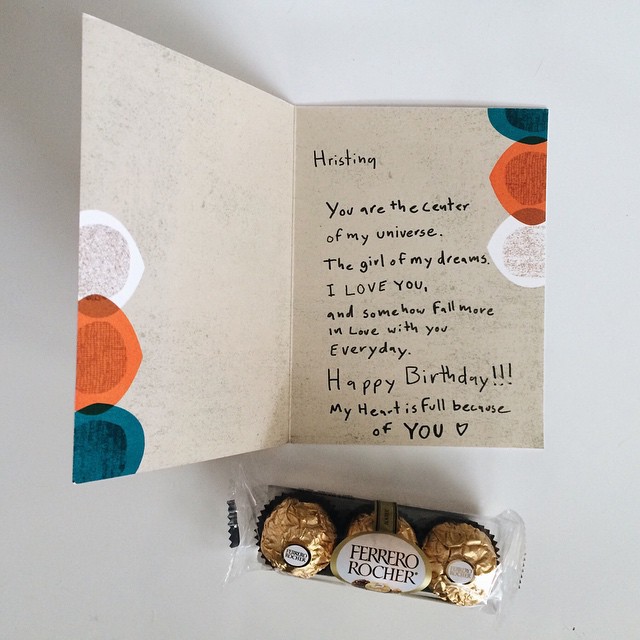 Hristina
You are the center
of my universe.
The girl of my dreams.
I LOVE YOU,
and somehow fall more
in Love with you
Everyday.
Happy Birthday!!!
My Heart is Full because
of YOU ♡
FERRERO
ROCHER
FERRERO
ROCHER®
FERRERO
ROCHER